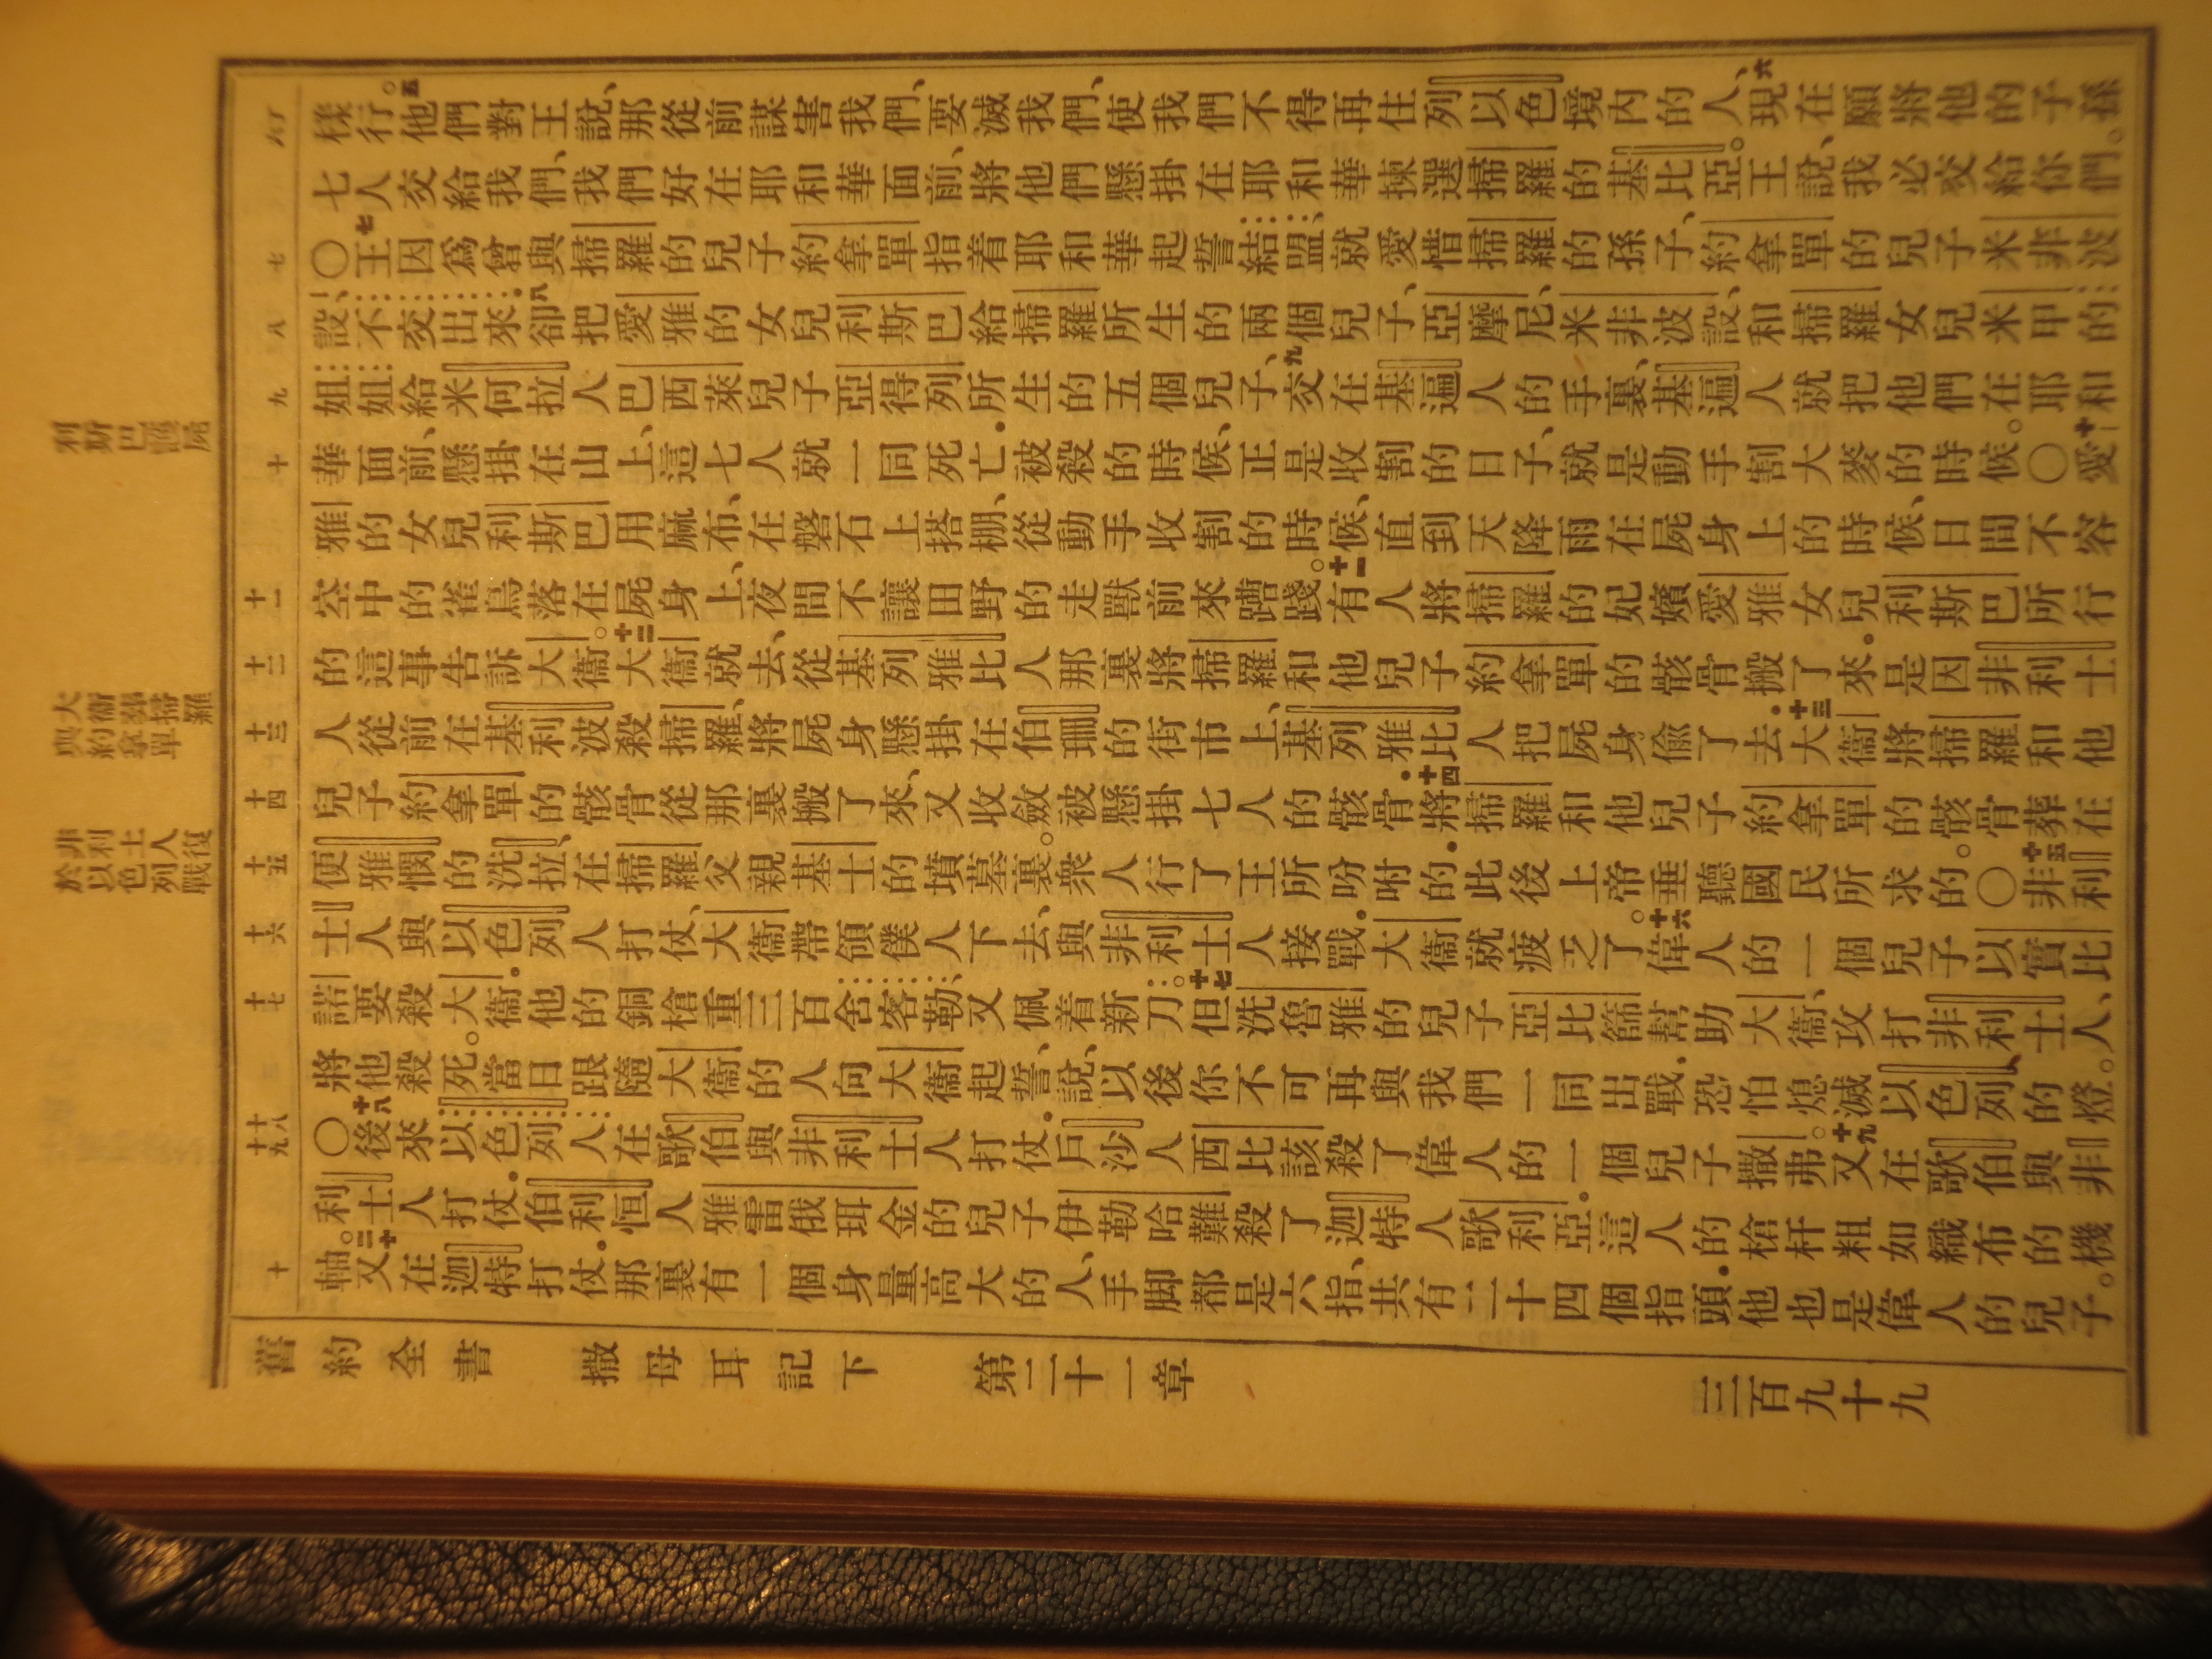 利斯巴護屍
大衛葬掃羅
與約拿單
非利士人復
於以色列戰
六
七
八
九
十
十一
十二
十三
十四
十五
十六
十七
十八
十九
二十
樣行。五他們對王說、那從前謀害我們、要滅我們、使我們不得再住列以色境內的人、六現在願將他的子孫
七人交給我們、我們好在耶和華面前、將他們懸掛在耶和華揀選掃羅的基比亞。王說、我必交給你們。
〇七王因爲曾與掃羅的兒子約拿單指着耶和華起誓結盟、就愛惜掃羅的孫子、約拿單的兒子米非波
設、不交出來．八卻把愛雅的女兒利斯巴給掃羅所生的兩個兒子、亞摩尼、米非波設、和掃羅女兒米甲的
姐姐給米何拉人巴西萊兒子亞得列所生的五個兒子、九交在基遍人的手裏、基遍人就把他們在耶和
華面前、懸掛在山上、這七人就一同死亡．被殺的時候、正是收割的日子、就是動手割大麥的時候。〇十愛
雅的女兒利斯巴用麻布、在磐石上搭棚、從動手收割的時候、直到天降雨在屍身上的時候、日間不容
空中的雀鳥落在屍身上、夜間不讓田野的走獸前來蹧踐。十一有人將掃羅的妃嬪愛雅女兒利斯巴所行
的這事告訴大衛。十二大衛就去、從基列雅比人那裏將掃羅和他兒子約拿單的骸骨搬了來．是因非利士
人從前在基利波殺掃羅、將屍身懸掛在伯珊的街市上、基列雅比人把屍身偸了去．十三大衛將掃羅和他
兒子約拿單的骸骨從那裏搬了來、又收斂被懸掛七人的骸骨．十四將掃羅和他兒子約拿單的骸骨葬在
便雅憫的洗拉、在掃羅父親基士的墳墓裏。衆人行了王所吩咐的．此後上帝垂聽國民所求的。〇十五非利
士人與以色列人打仗、大衛帶領僕人下去、與非利士人接戰．大衛就疲乏了。十六偉人的一個兒子以實比
諾要殺大衛．他的銅槍重三百舍客勒、又佩着新刀。十七但洗魯雅的兒子亞比篩幫助大衛、攻打非利士人、
將他殺死。當日跟隨大衛的人向大衛起誓、說、以後你不可再與我們一同出戰、恐怕熄滅以色列的燈。
〇十八後來以色列人在歌伯與非利士人打仗．戶沙人西比該殺了偉人的一個兒子撒弗。十九又在歌伯與非
利士人打仗．伯利恒人雅雷俄珥金的兒子伊勒哈難殺了迦特人歌利亞．這人的槍杆粗如織布的機
軸。二十又在迦特打仗．那裏有一個身量高大的人、手脚都是六指、共有二十四個指頭．他也是偉人的兒子。
舊約全書　撒母耳記下　第二十一章　三百九十九